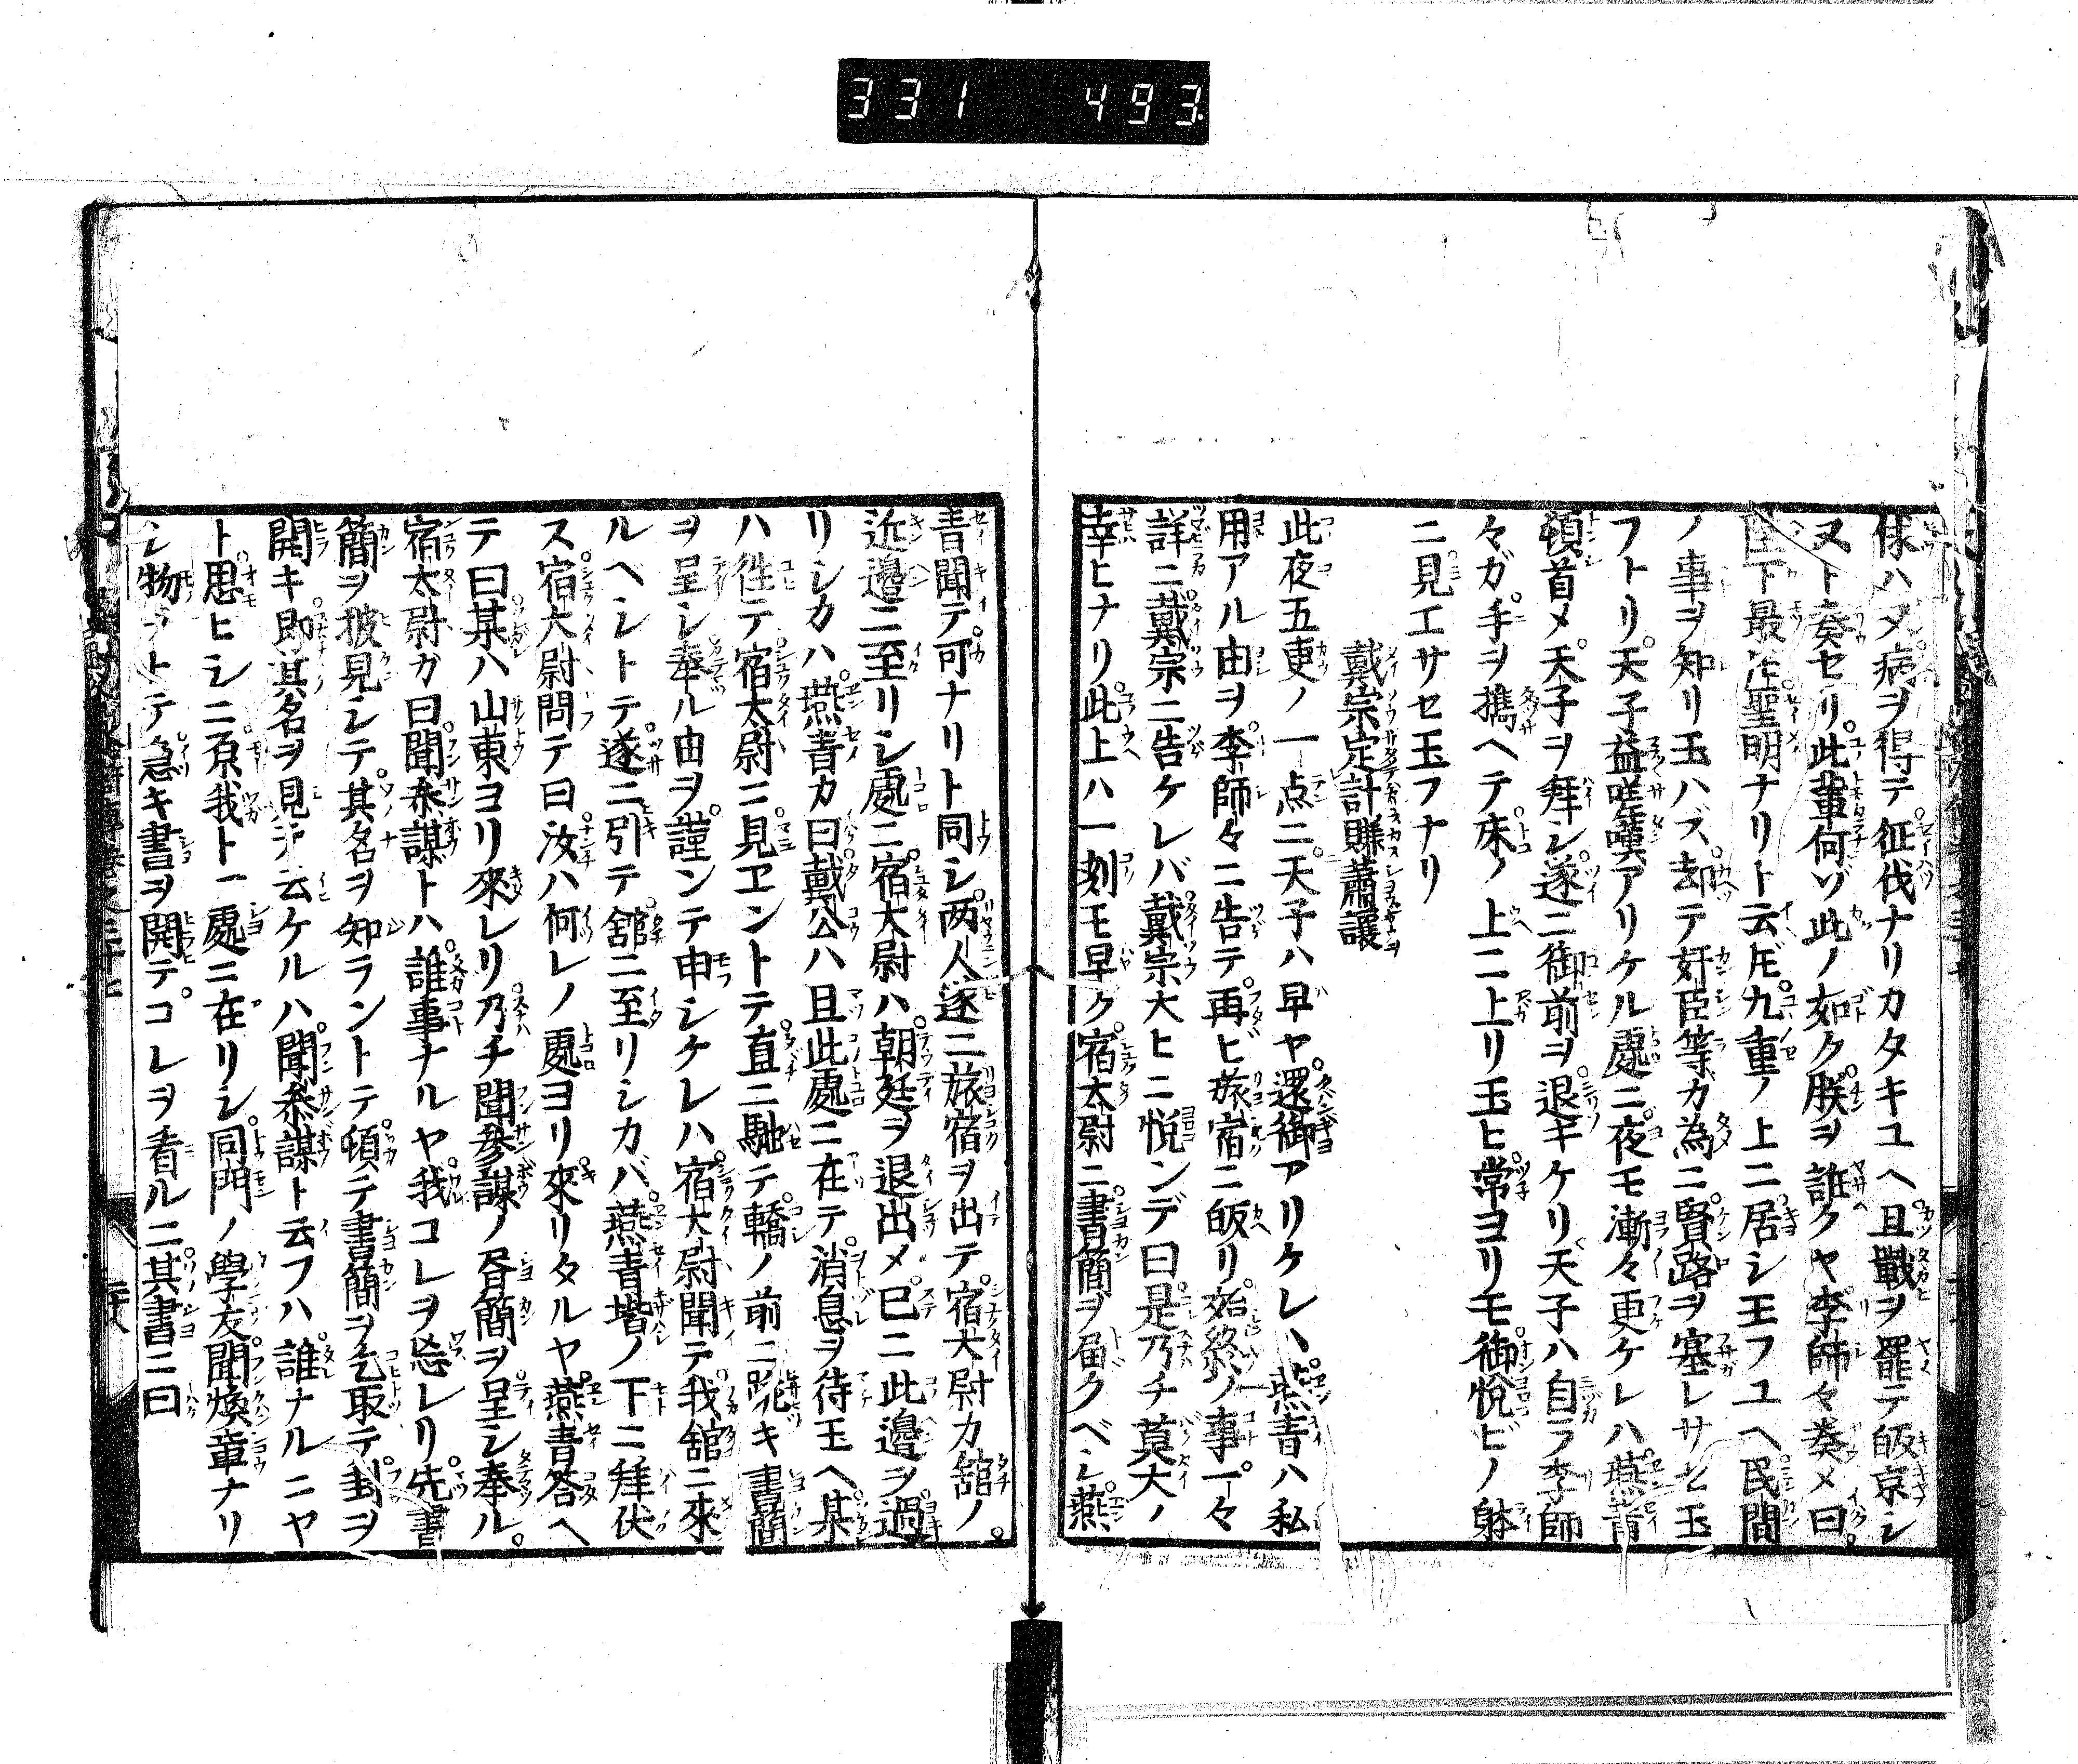 331 493
俅ハ又病ヲ得テ征伐ナリカタキユヘ且戰ヲ罷テ皈京シ
ヌト奏セリ此輩何ゾ此ノ如ク朕ヲ誑クヤ李師々奏メ曰
陛下最モ聖明ナリト云𪜈九重ノ上ニ居シ玉フユヘ民間
ノ事ヲ知リ玉ハズ却テ奸臣等カ為ニ賢路ヲ塞レサセ玉
フトリ天子益嗟嘆アリケル處ニ夜モ漸々更ケレハ燕青
頓首メ天子ヲ拜シ遂ニ御前ヲ退キケリ天子ハ自ラ李師
々ガ手ヲ携ヘテ床ノ上ニ上リ玉ヒ常ヨリモ御悦ビノ躰
ニ見エサセ玉フナリ
戴宗定計賺蕭讓
此夜五更ノ一点ニ天子ハ早ヤ還御アリケレハ燕青ハ私
用アル由ヲ李師々ニ告テ再ビ旅宿ニ皈リ始終ノ事一々
詳ニ戴宗ニ告ケレバ戴宗大ヒニ悦ンデ曰是乃チ莫大ノ
幸ヒナリ此上ハ一刻モ早ク宿太尉ニ書簡ヲ届クベシ燕
青聞テ可ナリト同シ两人遂ニ旅宿ヲ出テ宿太尉カ舘ノ
近邉ニ至リシ處ニ宿太尉ハ朝廷ヲ退出メ已ニ此邉ヲ過
リシカハ燕青カ曰戴公ハ且此處ニ在テ消息ヲ待玉ヘ某
ハ徃テ宿太尉ニ見ヱントテ直ニ馳テ轎ノ前ニ跪キ書簡
ヲ呈シ奉ル由ヲ謹ンテ申シケレハ宿太尉聞テ我舘ニ來
ルヘシトテ遂ニ引テ舘ニ至リシカバ燕青堦ノ下ニ拜伏
ス宿太尉問テ曰汝ハ何レノ處ヨリ來リタルヤ燕青答ヘ
テ曰某ハ山東ヨリ來レリ乃チ聞參謀ノ書簡ヲ呈シ奉ル
宿太尉カ曰聞叅謀トハ誰事ナルヤ我コレヲ忘レリ先書
簡ヲ披見シテ其名ヲ知ラントテ頓テ書簡ヲ乞取テ封ヲ
開キ即其名ヲ見テ云ケルハ聞叅謀ト云フハ誰ナルニヤ
ト思ヒシニ原我ト一處ニ在リシ同門ノ學友聞煥章ナリ
シ物ヲトテ急キ書ヲ開テコレヲ看ルニ其書ニ曰